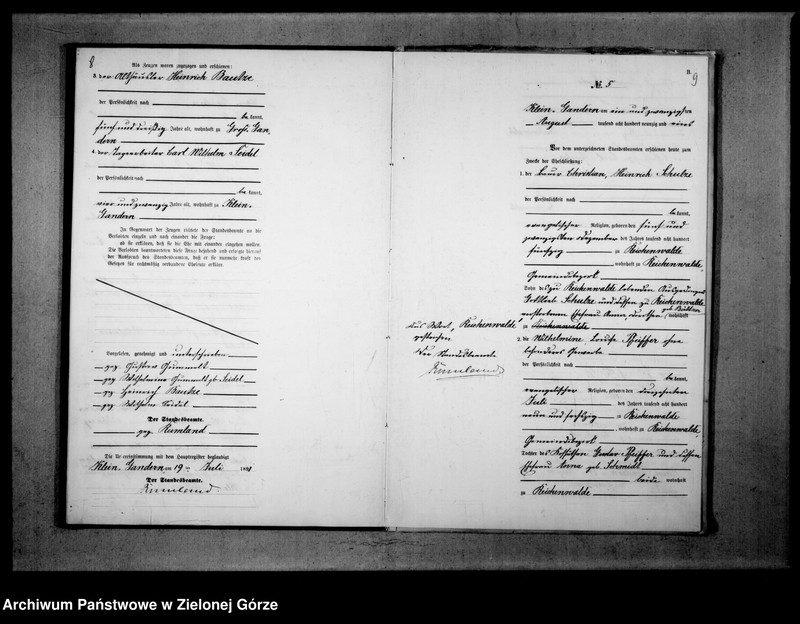 8
Als Zeugen waren zugezogen und erschienen:
3. der Altsitzler Heinrich Bautze
der Persönlichkeit nach
be kannt,
fünf und dreißig Jahre alt, wohnhaft zu Groß Gan-
dern
4. der Tagearbeiter Carl Wilhelm Seidel
der Persönlichkeit nach
be kannt,
vier und zwanzig Jahre alt, wohnhaft zu Klein-
Gandern
In Gegenwart der Zeugen richtete der Standesbeamte an die
Verlobten einzeln und nach einander die Frage:
ob sie erklären, daß sie die Ehe mit einander eingehen wollen.
Die Verlobten beantworteten diese Frage bejahend und erfolgte hierauf
der Ausspruch des Standesbeamten, daß er sie nunmehr kraft des
Gesetzes für rechtmäßig verbundene Eheleute erkläre.
Vorgelesen, genehmigt und unterschrieben
gez. Gustav
gez. Wilhelmine geb. Seidel
gez. Heinrich Bautze
gez. Wilhelm Seidel
Der Standesbeamte.
gez. Rumland
Die Uebereinstimmung mit dem Hauptregister beglaubigt
Klein-Gandern am 19 ten Juli 1891
Der Standesbeamte.
Rumland.
B.
9
№ 5
Klein-Gandern am ein und zwanzigsten
August tausend acht hundert neunzig und eins
Vor dem unterzeichneten Standesbeamten erschienen heute zum
Zwecke der Eheschließung:
1. der Bauer Christian, Heinrich Schulze
der Persönlichkeit nach
be kannt,
evangelischer Religion, geboren den fünf und
zwanzigsten Dezember des Jahres tausend acht hundert
fünfzig zu Reichenwalde
, wohnhaft zu Reichenwalde,
Gemeindebezirk
Sohn des zu Reichenwalde lebenden Ausgedingers
Gottlieb Schulze und dessen zu Reichenwalde
verstorbenen Ehefrau Anna, Dorothea, wohnhaft
zu Reichenwalde
Das Wort „Reichenwalde"
gestrichen
Der Standesbeamte
Rumland
2. die Wilhelmine, Louise Pfeiffer ohne
besonderes Gewerbe
der Persönlichkeit nach
be kannt,
evangelischer Religion, geboren den dreizehnten
Juli des Jahres tausend acht hundert
neun und sechszig zu Reichenwalde
, wohnhaft zu Reichenwalde,
Gemeindebezirk
Tochter des Kossäthen Gustav Pfeiffer und dessen
Ehefrau Anna geb. Schmidt
beide wohnhaft
zu Reichenwalde
Archiwum Państwowe w Zielonej Górze